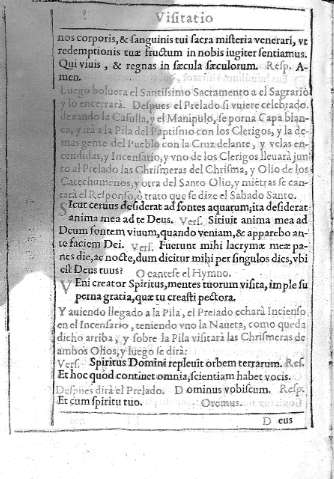 Visitatio
nos corporis, & sanguinis tui sacra misteria venerari, vt
redemptionis tuæ fructum in nobis iugiter sentiamus.
Qui viuis, & regnas in sæcula sæculorum. Resp. A-
men.
Luego boluera el Santissimo Sacramento a el Sagrario
y lo encerrarà. Despues el Prelado si vuiere celebrado
dexando la Casulla, y el Manipulo, se porna Capa blan-
ca, y irà a la Pila del Baptismo con los Clerigos, y la de-
mas gente del Pueblo con la Cruz delante, y velas en-
cendidas, y Incensario, y vno de los Clerigos lleuarà junto
al Prelado las Chrismeras del Chrisma, y Olio de los
Catechumenos, y otra del Santo Olio, y mietras se can-
tarà el Responso, ò trato que se dize el Sabado Santo.
Sicut ceruus desiderat ad fontes aquarum, ita desiderat
anima mea ad te Deus. Vers. Sitiuit anima mea ad
Deum fontem viuum, quando veniam, & apparebo an-
te faciem Dei. Vers. Fuerunt mihi lacrymæ meæ pa-
nes die, ac nocte, dum dicitur mihi per singulos dies, vbi
est Deus tuus? O cantese el Hymno.
VEni creator Spiritus, mentes tuorum visita, imple su
perna gratia, quæ tu creasti pectora.
Y auiendo llegado a la Pila, el Prelado echarà Incienso
en el Incensario, teniendo vno la Naueta, como queda
dicho arriba, y sobre la Pila visitarà las Chrismeras de
ambos Olios, y luego se dirà:
Vers. Spiritus Domini repleuit orbem terrarum. Res.
Et hoc quod continet omnia, scientiam habet vocis.
Despues dirà el Prelado. Dominus vobiscum. Resp.
Et cum spiritu tuo. Oremus.
D eus